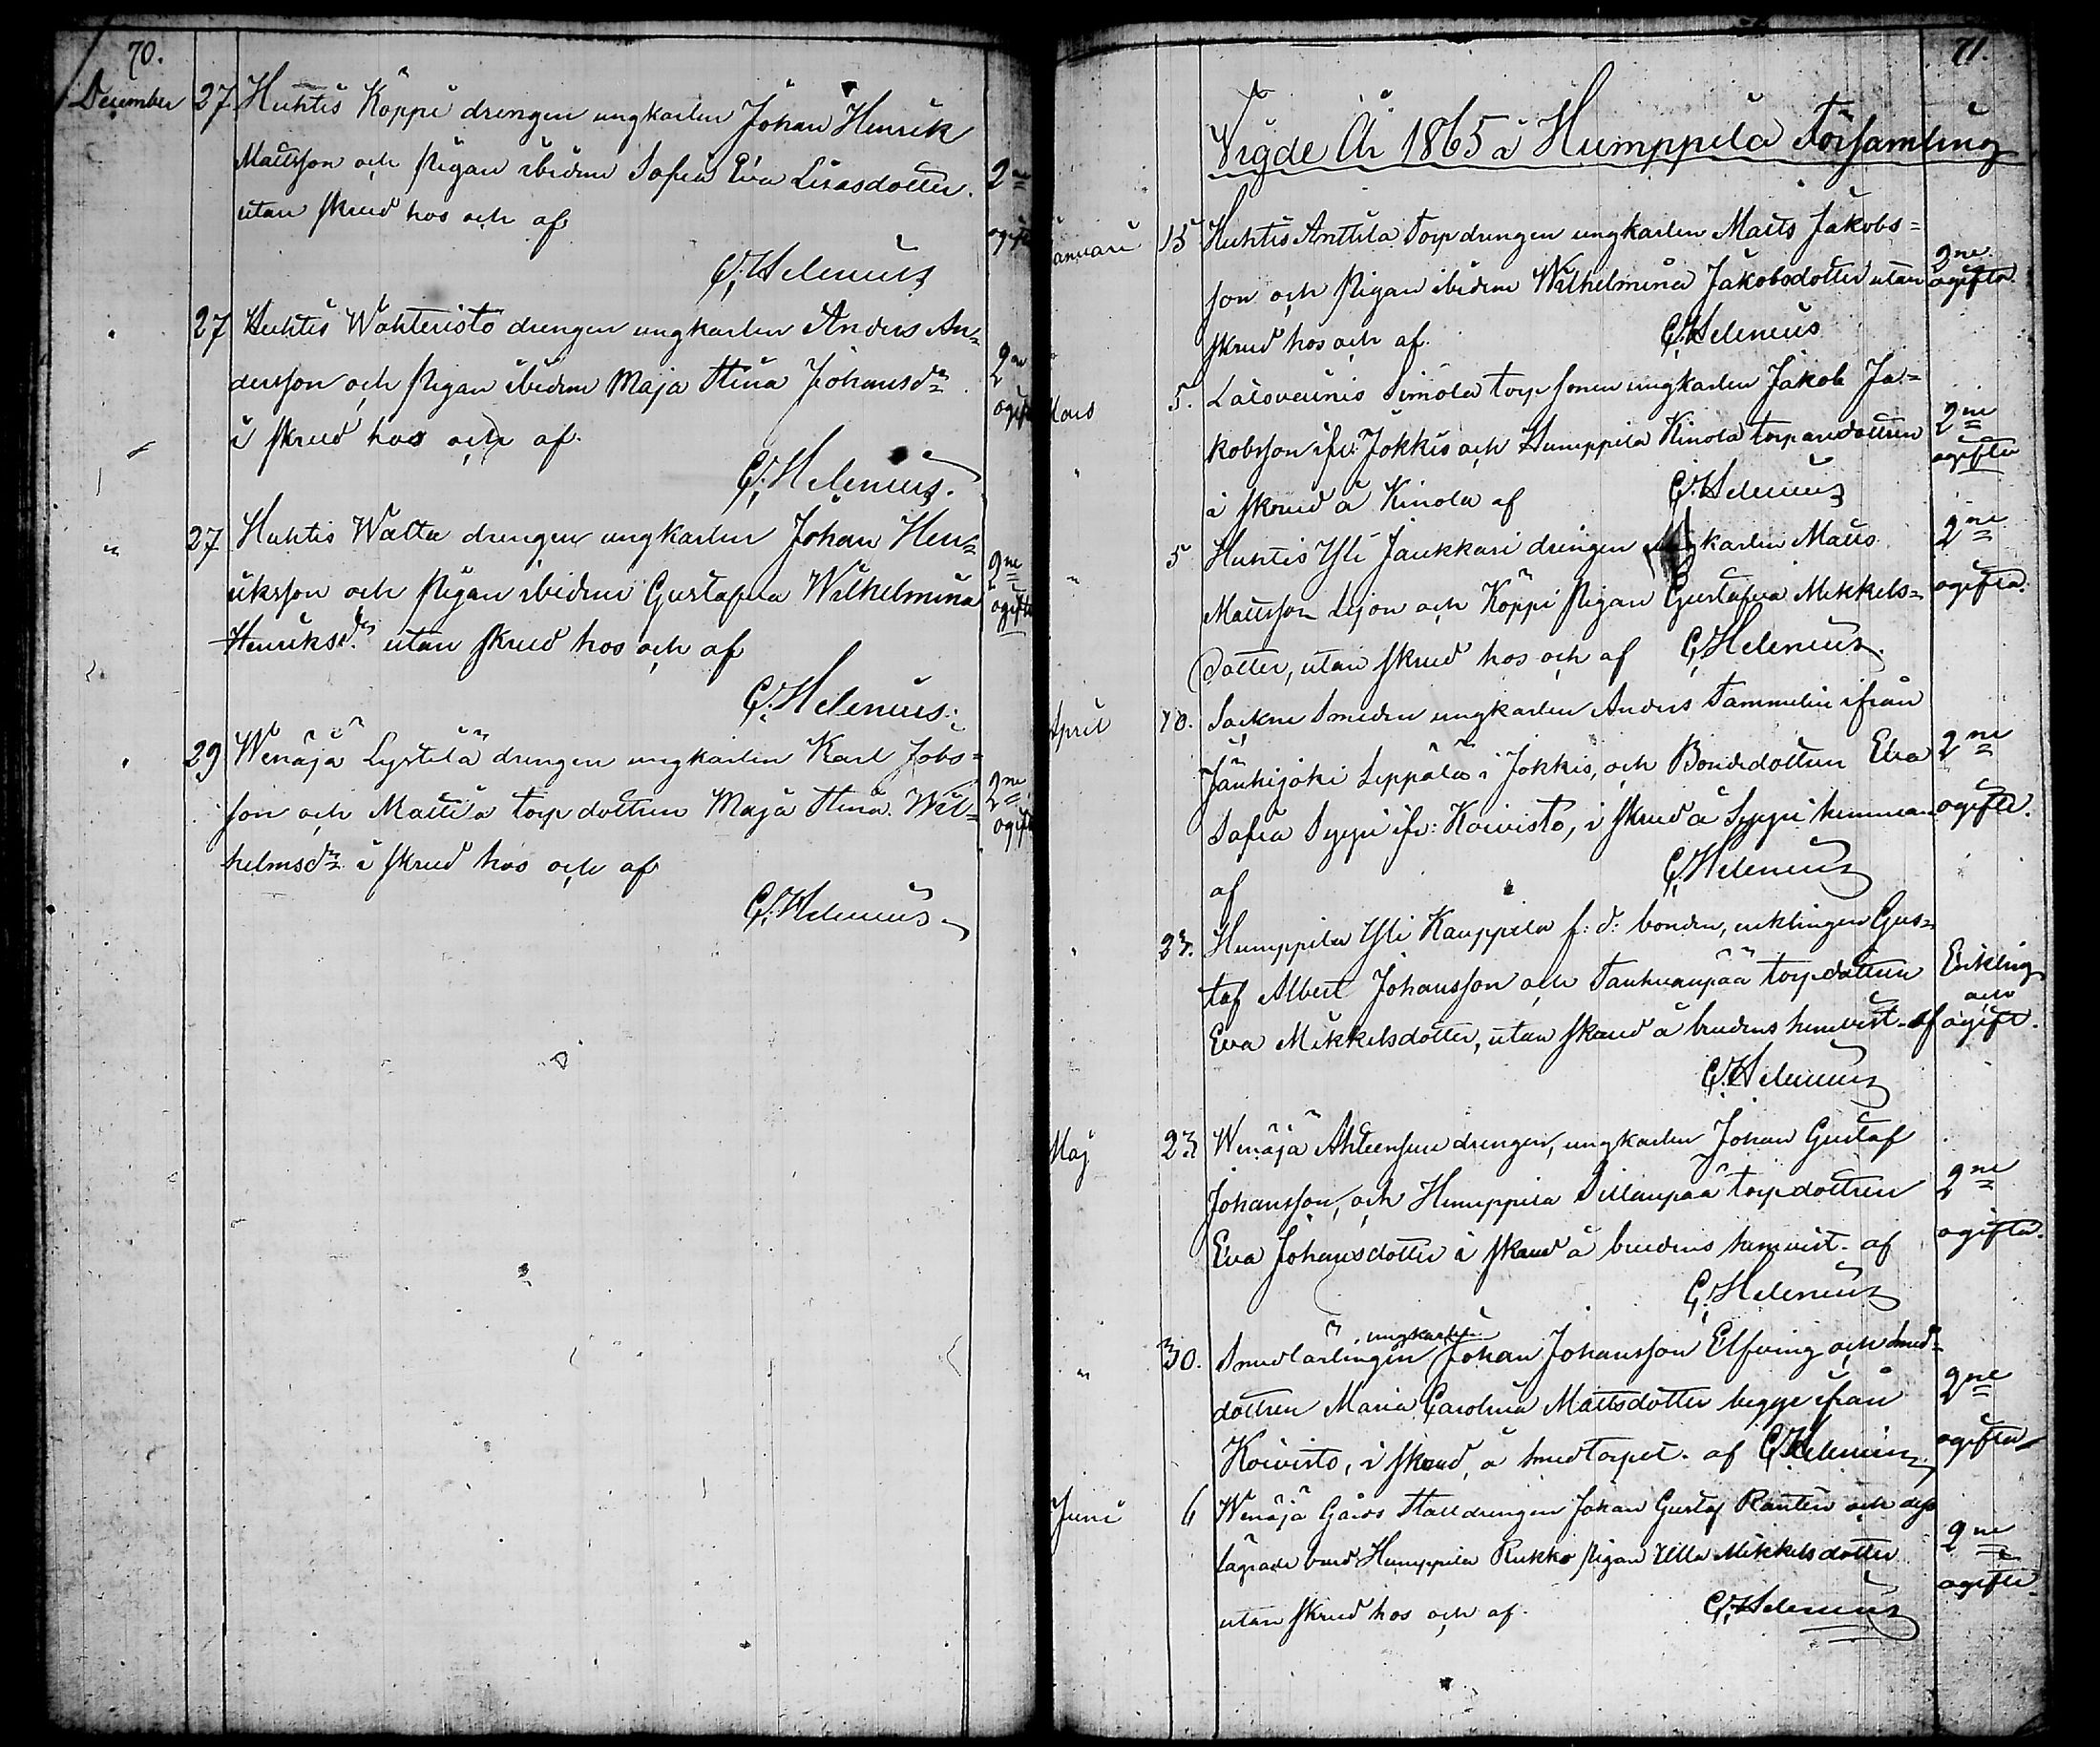 70.
December 27. Huhtis Köppi drengen ungkarlen Johan Henrik
Mattsson och Pigan ibidem Sofia Eva Lisasdotter. 2ne
utan skrud hos och af ogift
G. Helenius
27 Huhtis Wahteristo drengen ungkarlen Anders An=
dersson och Pigan ibidem Maja Stina Johansdr 2ne
i skrud hos och af. ogift
G. Helenius.
" 27 Huhtis Walta drengen ungkarlen Johan Hen=
riksson och Pigan ibidem Gustafva Wilhelmina 2ne
Henriksdr utan skrud hos och af ogifta
G. Helenius.
29 Wenäjä Lystilä drengen ungkarlen Karl Jobs=
son och Mattila torpdottren Maja Stina Wil= 2ne
helmsdr i skrud hos och af ogift
G. Helenius
71.
Vigde År 1865 i Humppila Församling
anuari 15 Huhtis Anttila Torpdrengen ungkarlen Matts Jakobs=
son och Pigan ibidem Wilhelmina Jakobsdotter utan 2ne ogifta
skrud hos och af. G. Helenius
Mars 5. Latovainio Simola torpsonen ungkarlen Jakob Ja=
kobsson ifr. Jokkis och Humppila Kinola torparedottren 2ne
i skrud å Kinola af G. Helenius ogifta
" 5 Huhtis Yli Jaukkari drengen ungkarlen Matts 2ne
Mattsson Lejon och Köppi Pigan Gustafva Mikkels= ogifta.
dotter, utan skrud hos och af G. Helenius.
April 10. Sockne Smeden ungkarlen Anders Tammelin ifrån
Jänhijoki Seppälä i Jokkis, och Bondedottren Eva 2ne
Sofia Seppi ifr: Koivisto, i skrud å Seppi hemman ogifta.
af G. Helenius
" 23. Humppila Yli Kauppila f: d: bonden, enklingen Gus=
taf Albert Johansson och Tanhuanpää torpdottren Enkling
Eva Mikkelsdotter, utan skrud å brudens hemvist af och ogift.
G. Helenius
Maj 23 Wenäjä Ahleensuu drengen, ungkarlen Johan Gustaf
Johansson, och Humppila Sillanpää torpdottren 2ne
Eva Johansdotter i skrud å brudens hemvist. af ogifta.
G. Helenius
ungkarlen
" 30. Smedlärlingen Johan Johansson Elfving och Smed=
dottren Maria Carolina Mattsdotter begge ifrån 2ne
Koivisto, i skrud, å Smedtorpet. af G. Helenius ogifta
Juni 6 Wenäjä Gårds Stalldrengen Johan Gustaf Rantin och dess
lägrade brud Humppila Rukko Pigan Ulla Mikkelsdotter 2ne
utan skrud hos och af. G. Helenius ogifta.